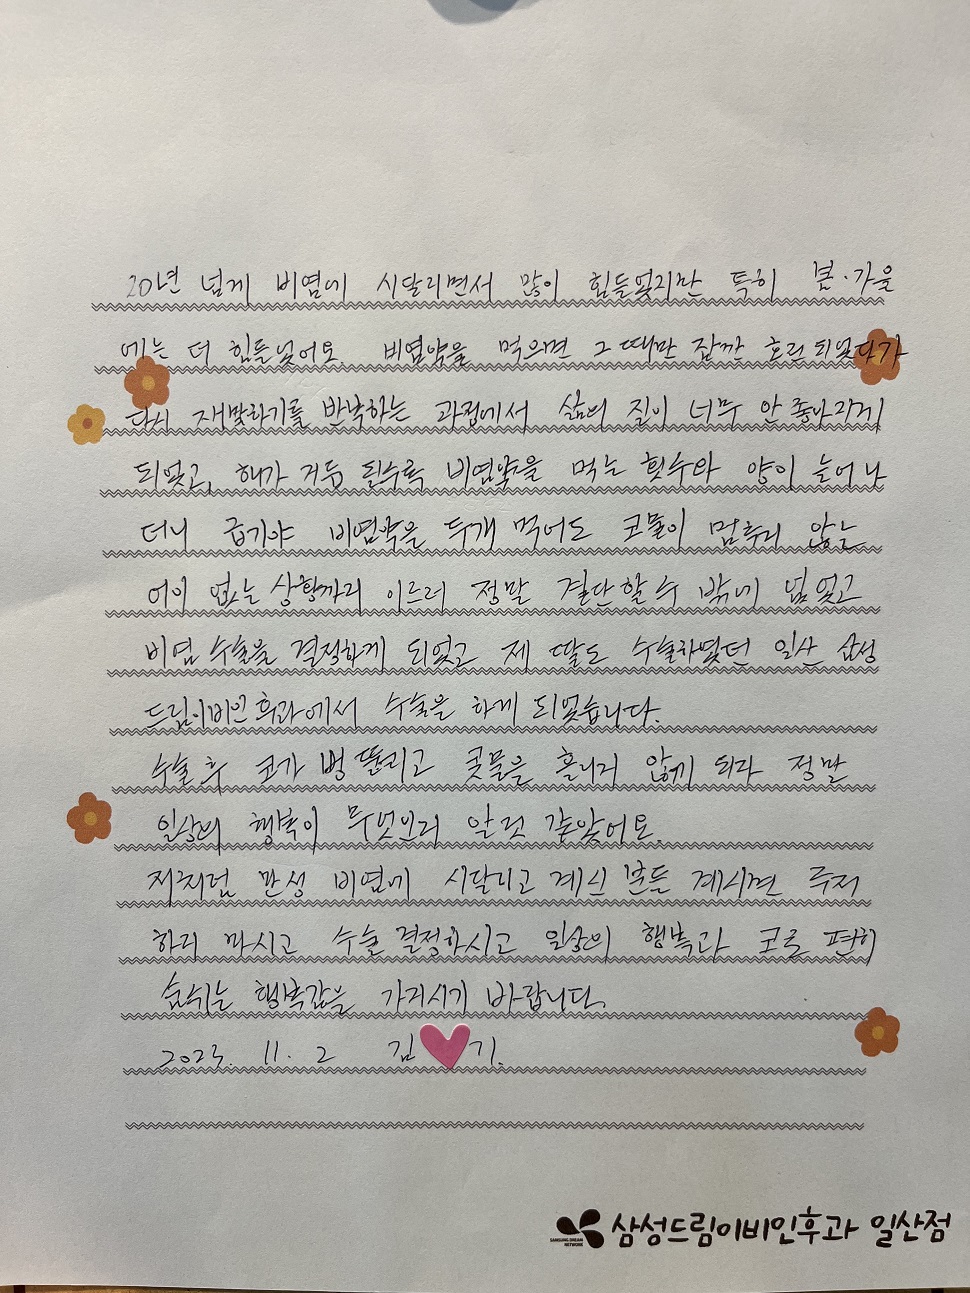 20년 넘게 비염에 시달리면서 많이 힘들었지만 특히 봄·가을
에는 더 힘들었어요. 비염약을 먹으면 그때만 잠깐 호전되었다가
다시 재발하기를 반복하는 과정에서 삶의 질이 너무 안 좋아지게
되었고, 해가 거듭 될수록 비염약을 먹는 횟수와 양이 늘어나
더니 급기야 비염약을 두개 먹어도 콧물이 멈추지 않는
어이 없는 상황까지 이르러 정말 결단할 수 밖에 없었고
비염 수술을 결정하게 되었고 제 딸도 수술하였던 일산 삼성
드림이비인후과에서 수술을 하게 되었습니다.
수술 후 코가 뻥 뚫리고 콧물을 흘리지 않게 되자 정말
일상의 행복이 무엇인지 알 것 같았어요.
저처럼 만성 비염에 시달리고 계신 분들 계시면 주저
하지 마시고 수술 결정하시고 일상의 행복과 코로 편히
숨쉬는 행복감을 가지시기 바랍니다.
2023. 11. 2 김 기.
삼성드림이비인후과 일산점
SAMSUNG DREAM
NETWORK